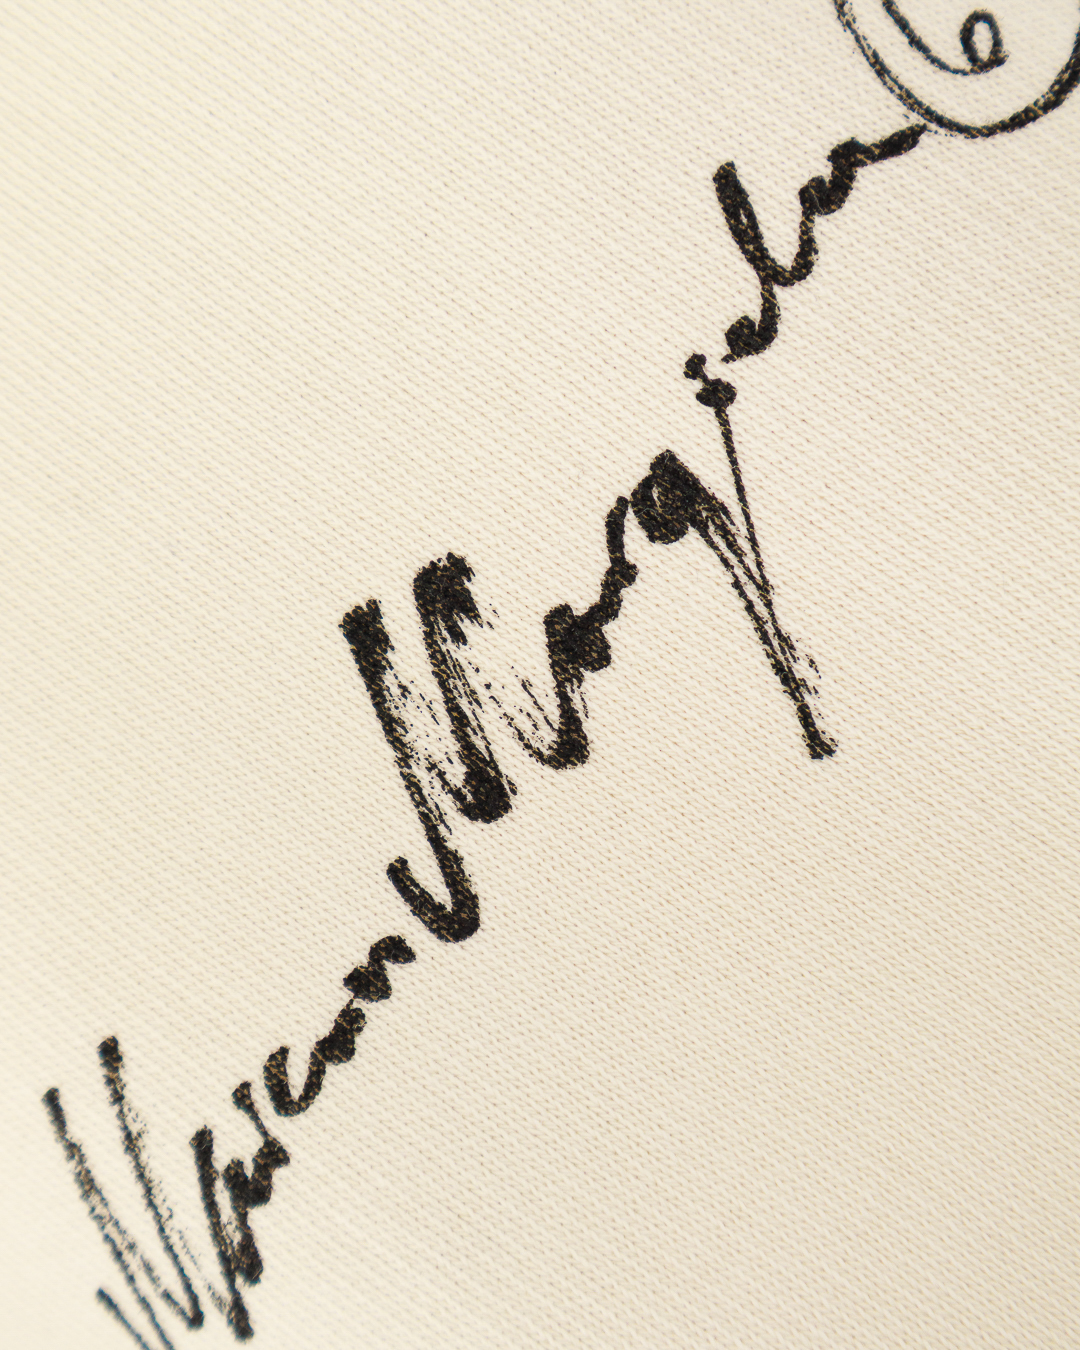 Maison Margiela